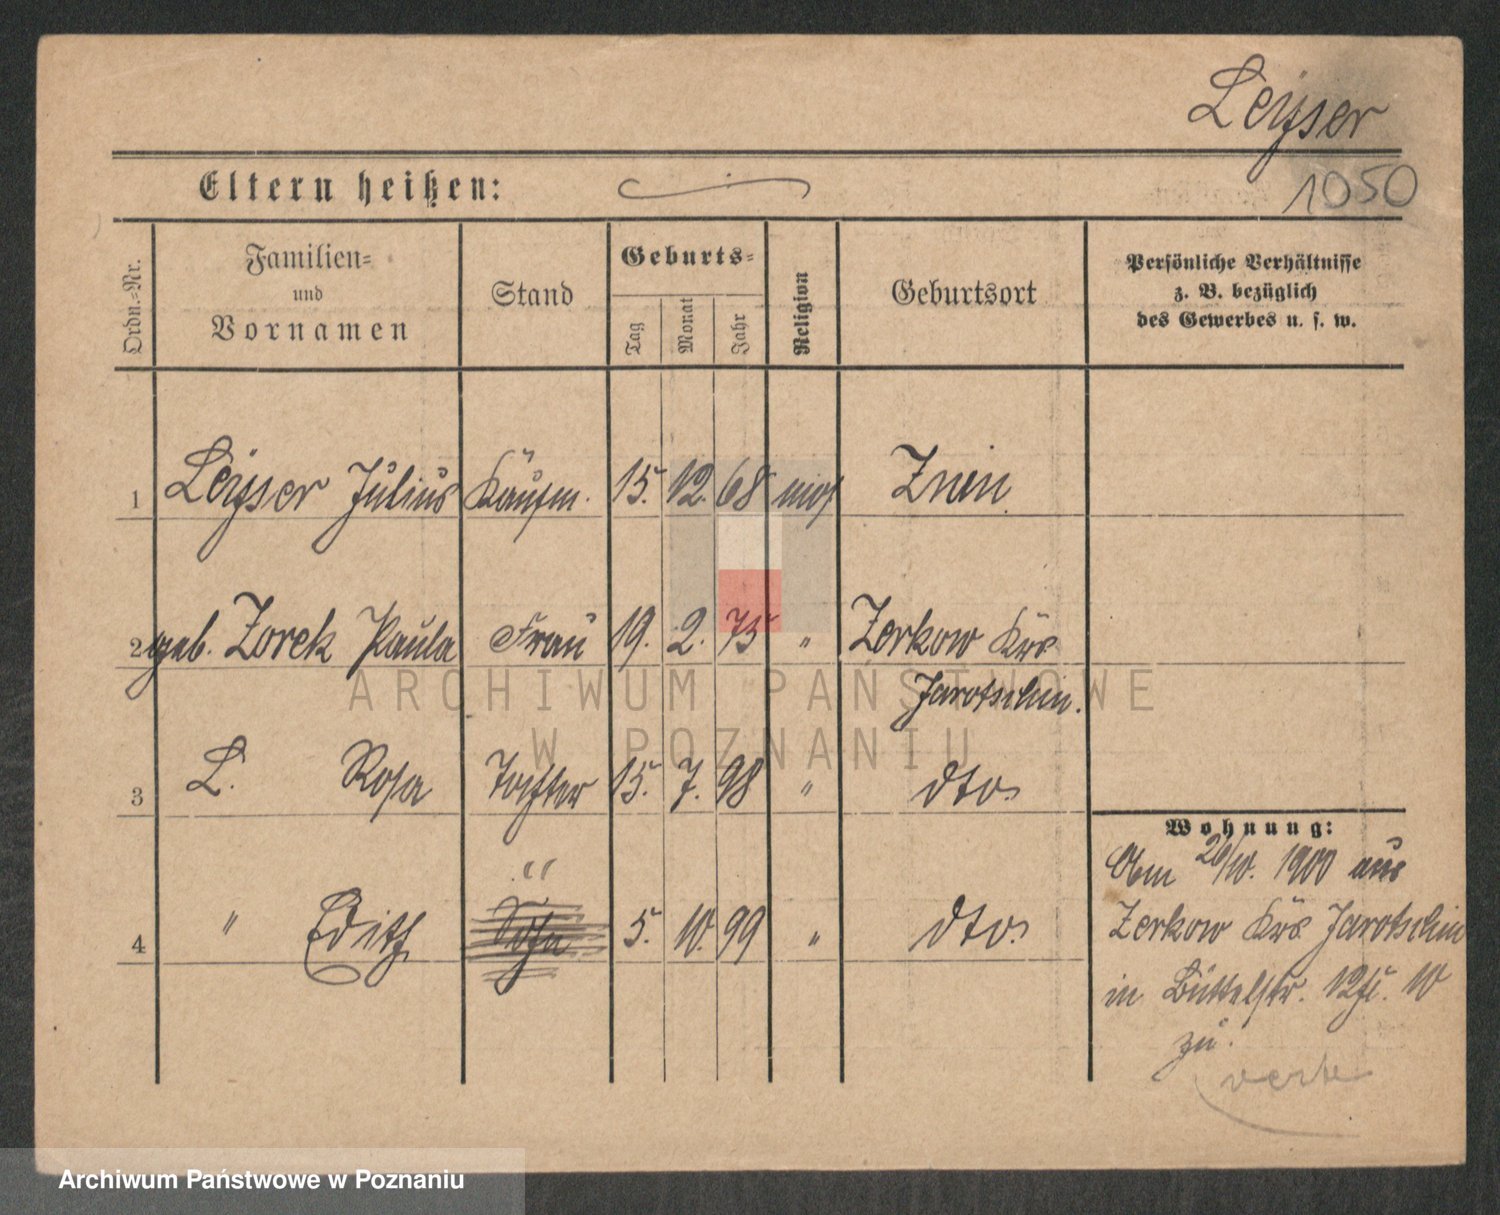 Leyser
1050
Eltern heißen:
Ordn.-Nr.
Familien-
und
Vornamen
Stand
Geburts-
Tag
Monat
Jahr
Religion
Geburtsort
Persönliche Verhältnisse
z. B. bezüglich
des Gewerbes u. s. w.
1 Leyser Julius Kaufm. 15. 12. 68 mos Znin
2 geb. Zorek Paula Frau 19. 2. 75 " Zerkow Krs
Jarotschin.
3 L. Rosa Tochter 15. 7. 98 " dto.
Wohnung:
"
4 " Edith 5. 10. 99 " dto.
Am 26/10. 1900 aus
Zerkow Krs Jarotschin
in Büttelstr. 12 10
zu.
verte
ARCHIWUM PAŃSTWOWE
W POZNANIU
Archiwum Państwowe w Poznaniu